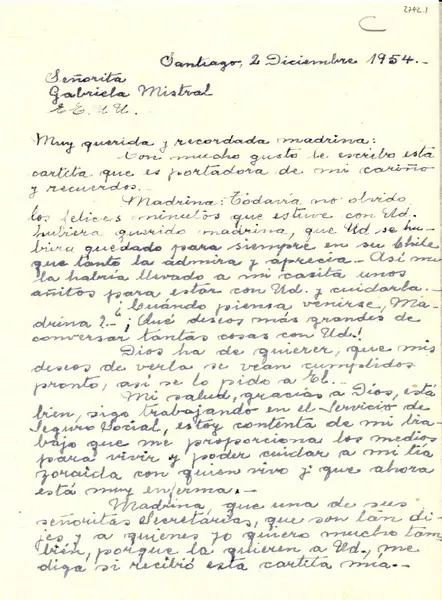 2742.1
C
Santiago, 2 Diciembre 1954.-
Señorita
Gabriela Mistral
EE. UU.
Muy querida y recordada madrina:
Con mucho gusto le escribo esta
cartita que es portadora de mi cariño
y recuerdos.
Madrina: Todavía no olvido
los felices minutos que estuve con Ud.
hubiera querido madrina, que Ud se hu-
biera quedado para siempre en su Chile
que tanto la admira y aprecia.- Así me
la habría llevado a mi casita unos
añitos para estar con Ud. y cuidarla.-
¿Cuándo piensa venirse, Ma-
drina?.- ¡Qué deseos más grandes de
conversar tantas cosas con Ud.!
Dios ha de querer, que mis
deseos de verla se vean cumplidos
pronto, así se lo pido a Él...
Mi salud, gracias a Dios, está
bien, sigo trabajando en el Servicio de
Seguro Social, estoy contenta de mi tra-
bajo que me proporciona los medios
para vivir y poder cuidar a mi tía
Zoraida con quien vivo y que ahora
está muy enferma.-
Madrina, que una de sus
señoritas Secretarias, que son tan di-
jes y a quienes yo quiero mucho tam-
bién, porque la quieren a Ud., me
diga si recibió esta cartita mía.-